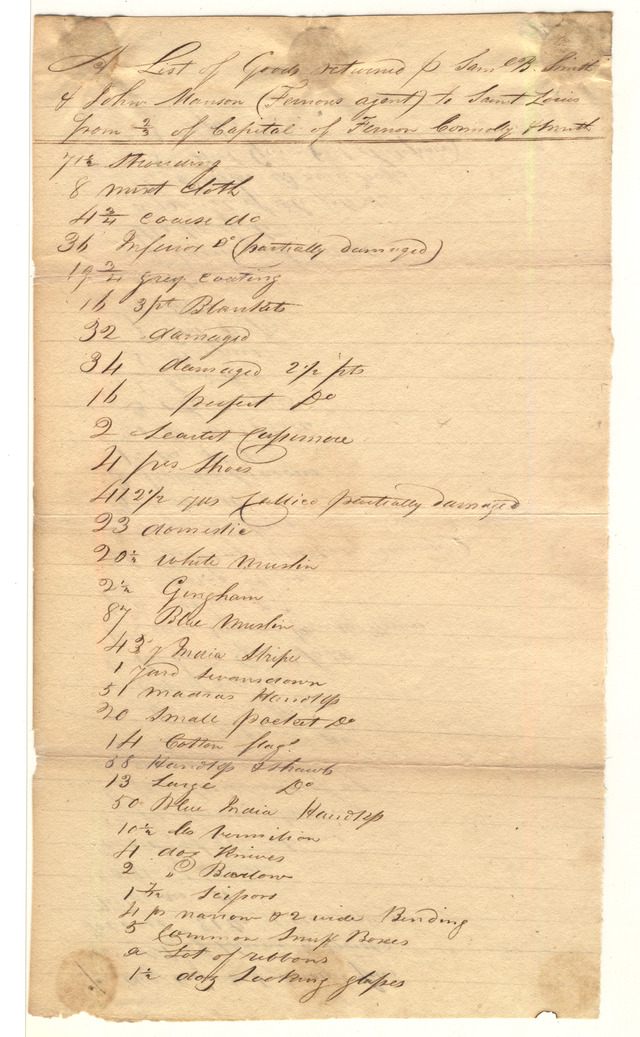 A List of Goods returned p Saml B. Smith
& John Manson (Fernons agent) to Saint Louis
from 2/3 of Capital of Fernon Connolly & Smith
71½ Strouding
8 mixt cloth
4¾ coarse do
36 Inferior Do (partially damaged)
19¾ grey coating
16 3pt Blankets
32 damaged
34 damaged 2½ pts
16 perfect Do
2 Scarlet Cassimere
4 prs Shoes
412½ yds Callico partially damaged
23 domestic
20½ white Muslin
2½ Gingham
87 Blue Muslin
4 India Stripe
1 yard Swansdown
51 madras Handkfs
20 Small pocket Do
14 Cotton flags
58 Handkfs & Shawls
13 Large Do
50 Blue India Handkfs
10½ lbs vermilion
4 doz Knives
2 " Barlow
1 Scissors
4 ps narrow & 2 wide Binding
5 Common Snuff Boxes
a Lot of ribbons
1½ doz Looking glasses